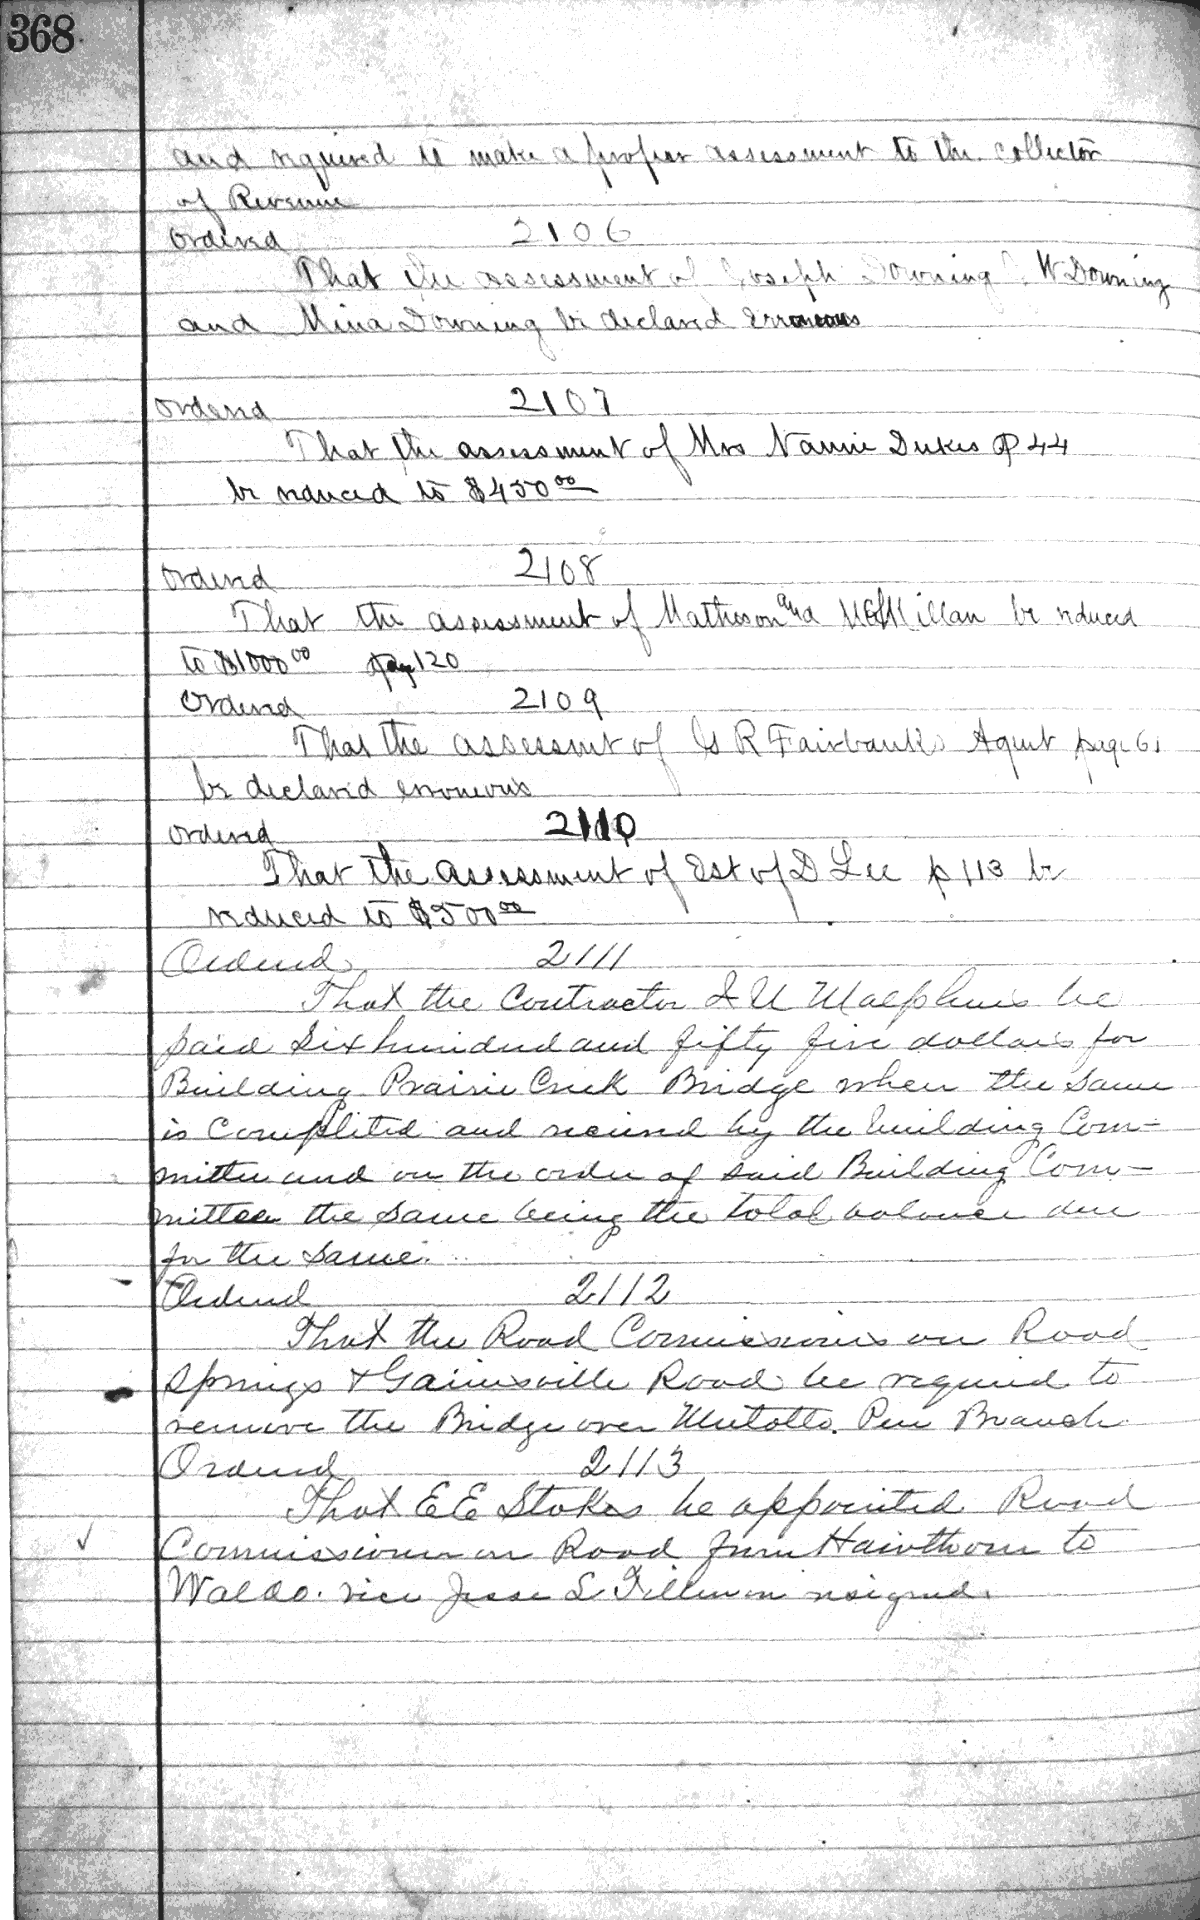 368
and required to make a proper assessment to the collector
of Revenue
Ordered 2106
That the assessment of Joseph Downing W Downing
and Mina Downing be declared erroneous
Ordered 2107
That the assessment of Mrs Nannie Dukes P 44
be reduced to $450 00
Ordered 2108
That the assessment of Matheson and McMillan be reduced
to $1000 00 page 120
Ordered 2109
That the assessmt of G R Fairbanks Agent page 61
be declared erroneous
Ordered 2110
That the assessment of Est of D Lee p 113 be
reduced to $500 00
Ordered 2111
That the Contractor be
paid Six hundred and fifty five dollars for
Building Prairie Creek Bridge when the same
is completed and received by the building Com-
mittee and on the order of said Building Com-
mittee the same being the total balance due
for the same.
Ordered 2112
That the Road Commissioners on Road
Springs & Gainesville Road be required to
remove the Bridge over Pen Branch
Ordered 2113
That E E Stokes be appointed Road
Commissioner on Road from Hawthorn to
Waldo vice Jesse L Tillman resigned.